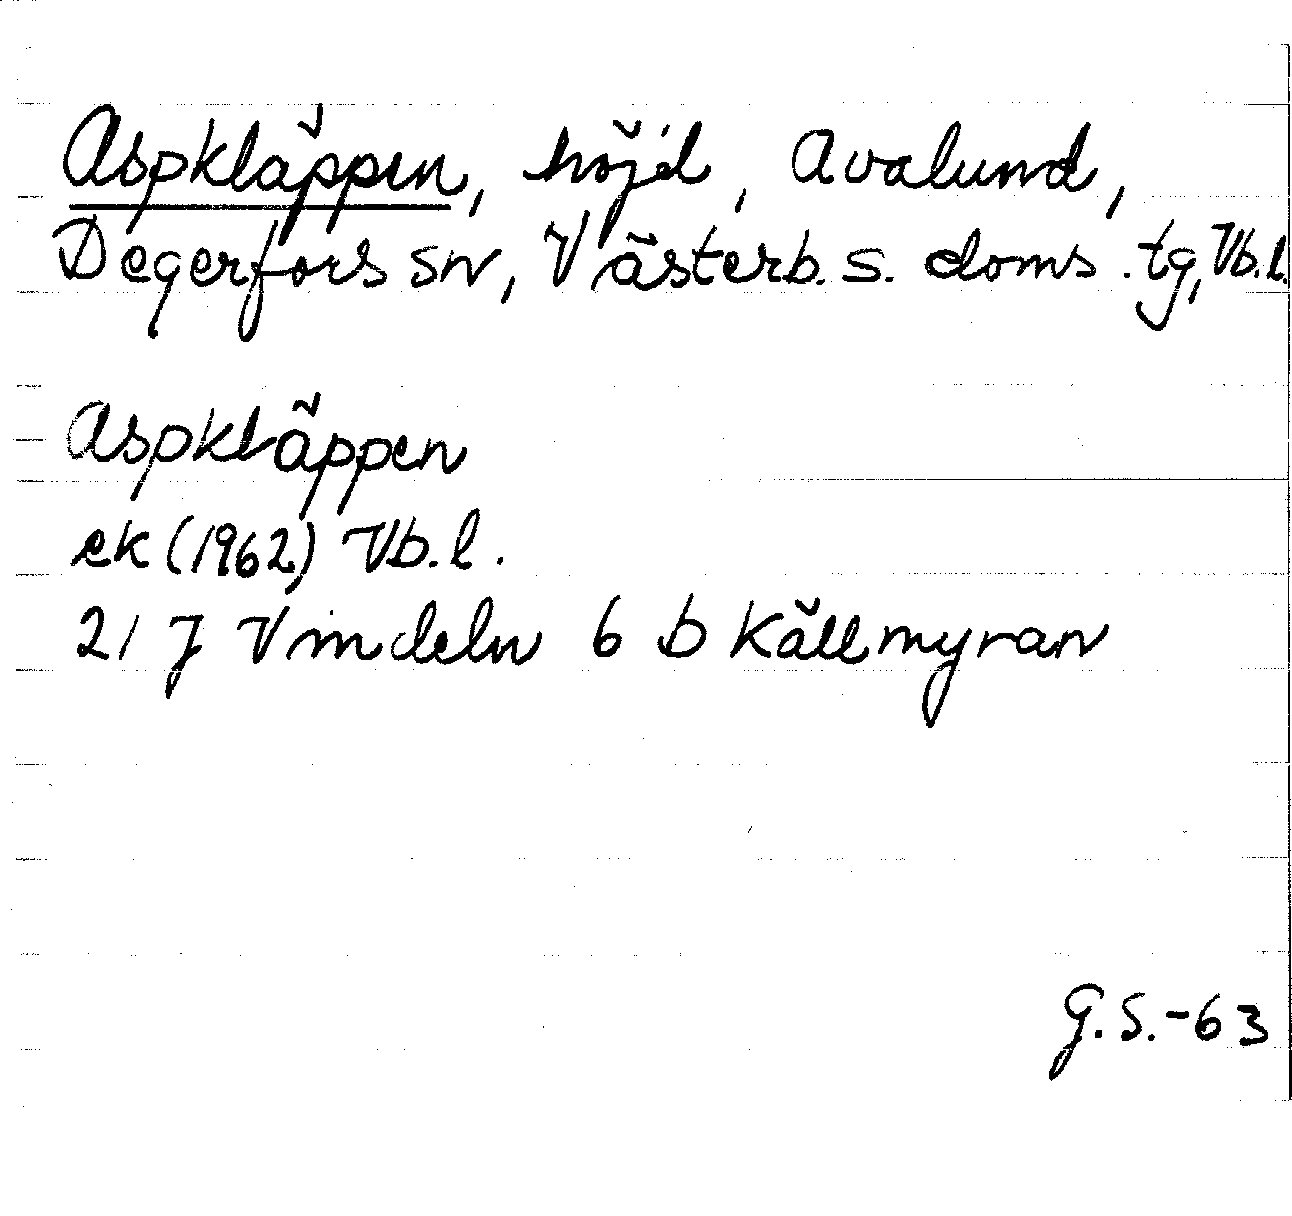 Aspkläppen, höjd, Avalund,
Degerfors sn, Västerb. s. doms. tg, Vb. l.
Aspkläppen
ek (1962) Vb. l.
21 J Vindeln 6 b Källmyran
G. S. -63